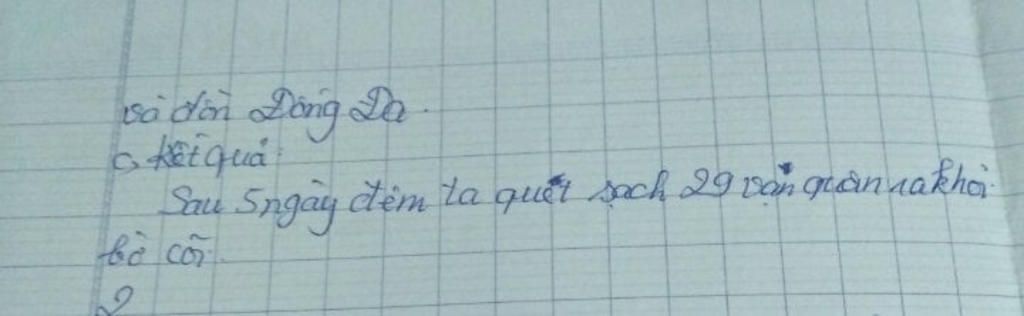 và đồn Đống Đa.
c, kết quả:
Sau 5 ngày đêm ta quét sạch 29 vạn quân ra khỏi
bờ cõi.
2